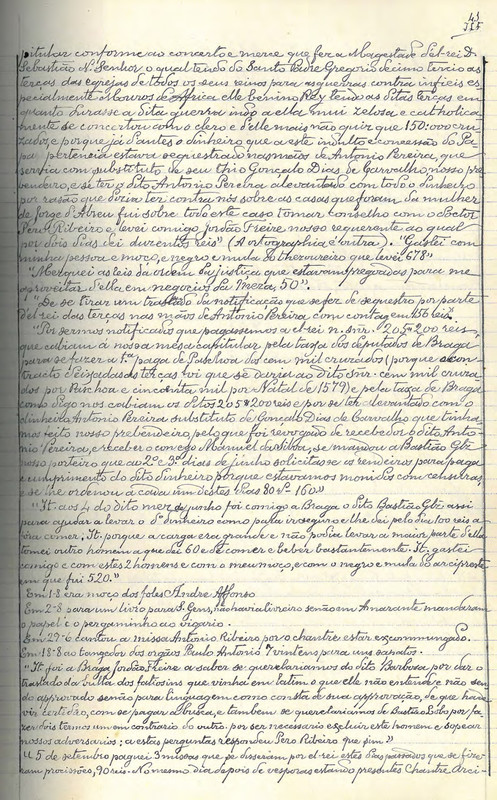 43
315
pitular conforme ao concerto e merce que fez a Magestade d'el-rei D.
Sebastião N. Senhor o qual tendo do Santo Padre Gregorio decimo tercio as
terças das egrejas de todos os seus reinos para as guerras contra infieis es
pecialmente Mouros de Africa elle benino Rey tendo as ditas terças em
quanto durasse a dita guerra indo a ella mui zelosa e catholica-
mente se concertou com o clero e d'elle mais não quiz que 150:000 cru
zados, e porque já d'antes o dinheiro que a este indulto e concessão do Pa
pa pertencia estava sequestrado nas mãos de Antonio Pereira, que
servia com substituto de seu thio Gonçalo Dias de Carvalho nosso pre
bendeiro, e se ter o dito Antonio Pereira alevantado com todo o dinheiro
por rasão que dizia ter contra nós sobre as casas que foram da mulher
de Jorge d'Abreu fui sobre todo este caso tomar conselho com o doctor
Pero Ribeiro e levei comigo Jordão Freire nosso requerente ao qual
por dois dias dei duzentos reis" (A ortographia é outra). "Gastei com
minha pessoa e moço, e negro e mula do thezoureiro que levei 678"
"Merquei as leis da ordem da justiça que estavam pregadas para me
aproveitar d'ella em negocios da Meza, 50".
"De se tirar um traslado da notificação que se fez de sequestro por parte
d'el rei das terças nas mãos de Antonio Pereira com contas em 156 reis"
"Por sermos notificados que pagassemos a el-rei n. snr. 205#200 reis,
que cabiam á nossa mesa capitular pela taxa dos deputados de Braga
para se fazer a 1ª paga de Paschoa dos cem mil cruzados (porque o con-
tracto e deixadas as terças foi que se daria ao dito Snr. cem mil cruza
dos por Paschoa e cincoenta mil por Natal de 1579) e pela taxa de Braga
como digo nos cabiam os ditos 205#200 reis e por se ter alevantado com o
dinheiro Antonio Pereira substituto de Gonçalo Dias de Carvalho que tinha
mos feito nosso prebendeiro pelo que foi revogado de recebedor o dito Anto
nio Pereira, e recebedor o conego Manuel da Silva, se mandou a Bastião Glz.
nosso porteiro que ao 2º e 3º dias de junho solicitasse os rendeiros para paga
e cumprimento do dito dinheiro porque estavamos monidos com censuras,
e se lhe ordenou a cada um destes dias 80 rs. 160."
"It. aos 4 do dito mez de junho foi comigo a Braga o dito Bastião Glz. assi
para ajudar a levar o dº dinheiro como para ir seguro e lhe dei pelo dia 100 reis a
fora comer. It. porque a carga era grande e não podia levar a maior parte d'ella
tomei outro homem a que dei 60 e de comer e beber bastantemente. It. gastei
comigo e com estes 2 homens e com o meu moço, e com o negro e mula do arcipreste
em que fui 520."
Em 1-8 era moço dos foles Andre Affonso
Em 2-8 para um livro para S. Gens, não havia livreiro senão em Amarante mandaram
o papel e o pergaminho ao vigario.
Em 29-6 cantou a missa Antonio Ribeiro por o chantre estar excommungado.
Em 18-8 ao tangedor dos orgãos Paulo Antonio 7 vintens para uns sapatos.
"It. foi a Braga Jordão Freire a saber se querelariamos do dito Barbosa por dar o
traslado da bulla dos fatiosins que vinha em latim o que elle não entende e não sen
do approvado senão para linguagem como consta de sua approvação, de que houve
vir certidão, com se pagar a busca, e tambem se querelariamos de Bastião Lobo por fa
zer dois termos um em contrario do outro por ser necessario excluir este homem e sopear
nossos adversarios; a estas perguntas respondeu Pero Ribeiro que sim."
"5 de setembro paguei 3 missas que se disseram por el-rei estes dias passados que se fize
ram procissões, 90 reis. No mesmo dia depois de vesporas estando presentes Chantre Arci-